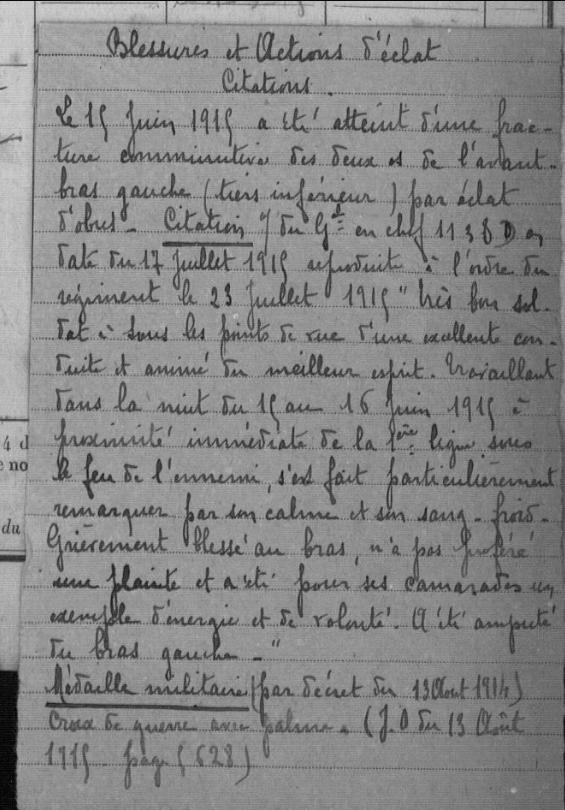 Blessures et Actions d'éclat
Citations.
Le 15 Juin 1915 a été atteint d'une frac-
ture comminutive des deux os de l'avant-
bras gauche (tiers inférieur) par éclat
d'obus - Citation du Gal en chef 1138 D en
date du 17 Juillet 1915 reproduite à l'ordre du
régiment le 23 Juillet 1915 " très bon sol-
dat à tous les points de vue d'une excellente con-
duite et animé du meilleur esprit. Travaillant
dans la nuit du 15 au 16 Juin 1915 à
proximité immédiate de la 1ère ligne sous
le feu de l'ennemi, s'est fait particulièrement
remarquer par son calme et son sang-froid -
Grièvement blessé au bras, n'a pas proféré
une plainte et a été pour ses camarades un
exemple d'énergie et de volonté. A été amputé
du bras gauche - "
Médaille militaire (par décret du 13 Août 1914)
Croix de guerre avec palme. (J.O du 13 Août
1915 - page 5628)
4 d
e no
du